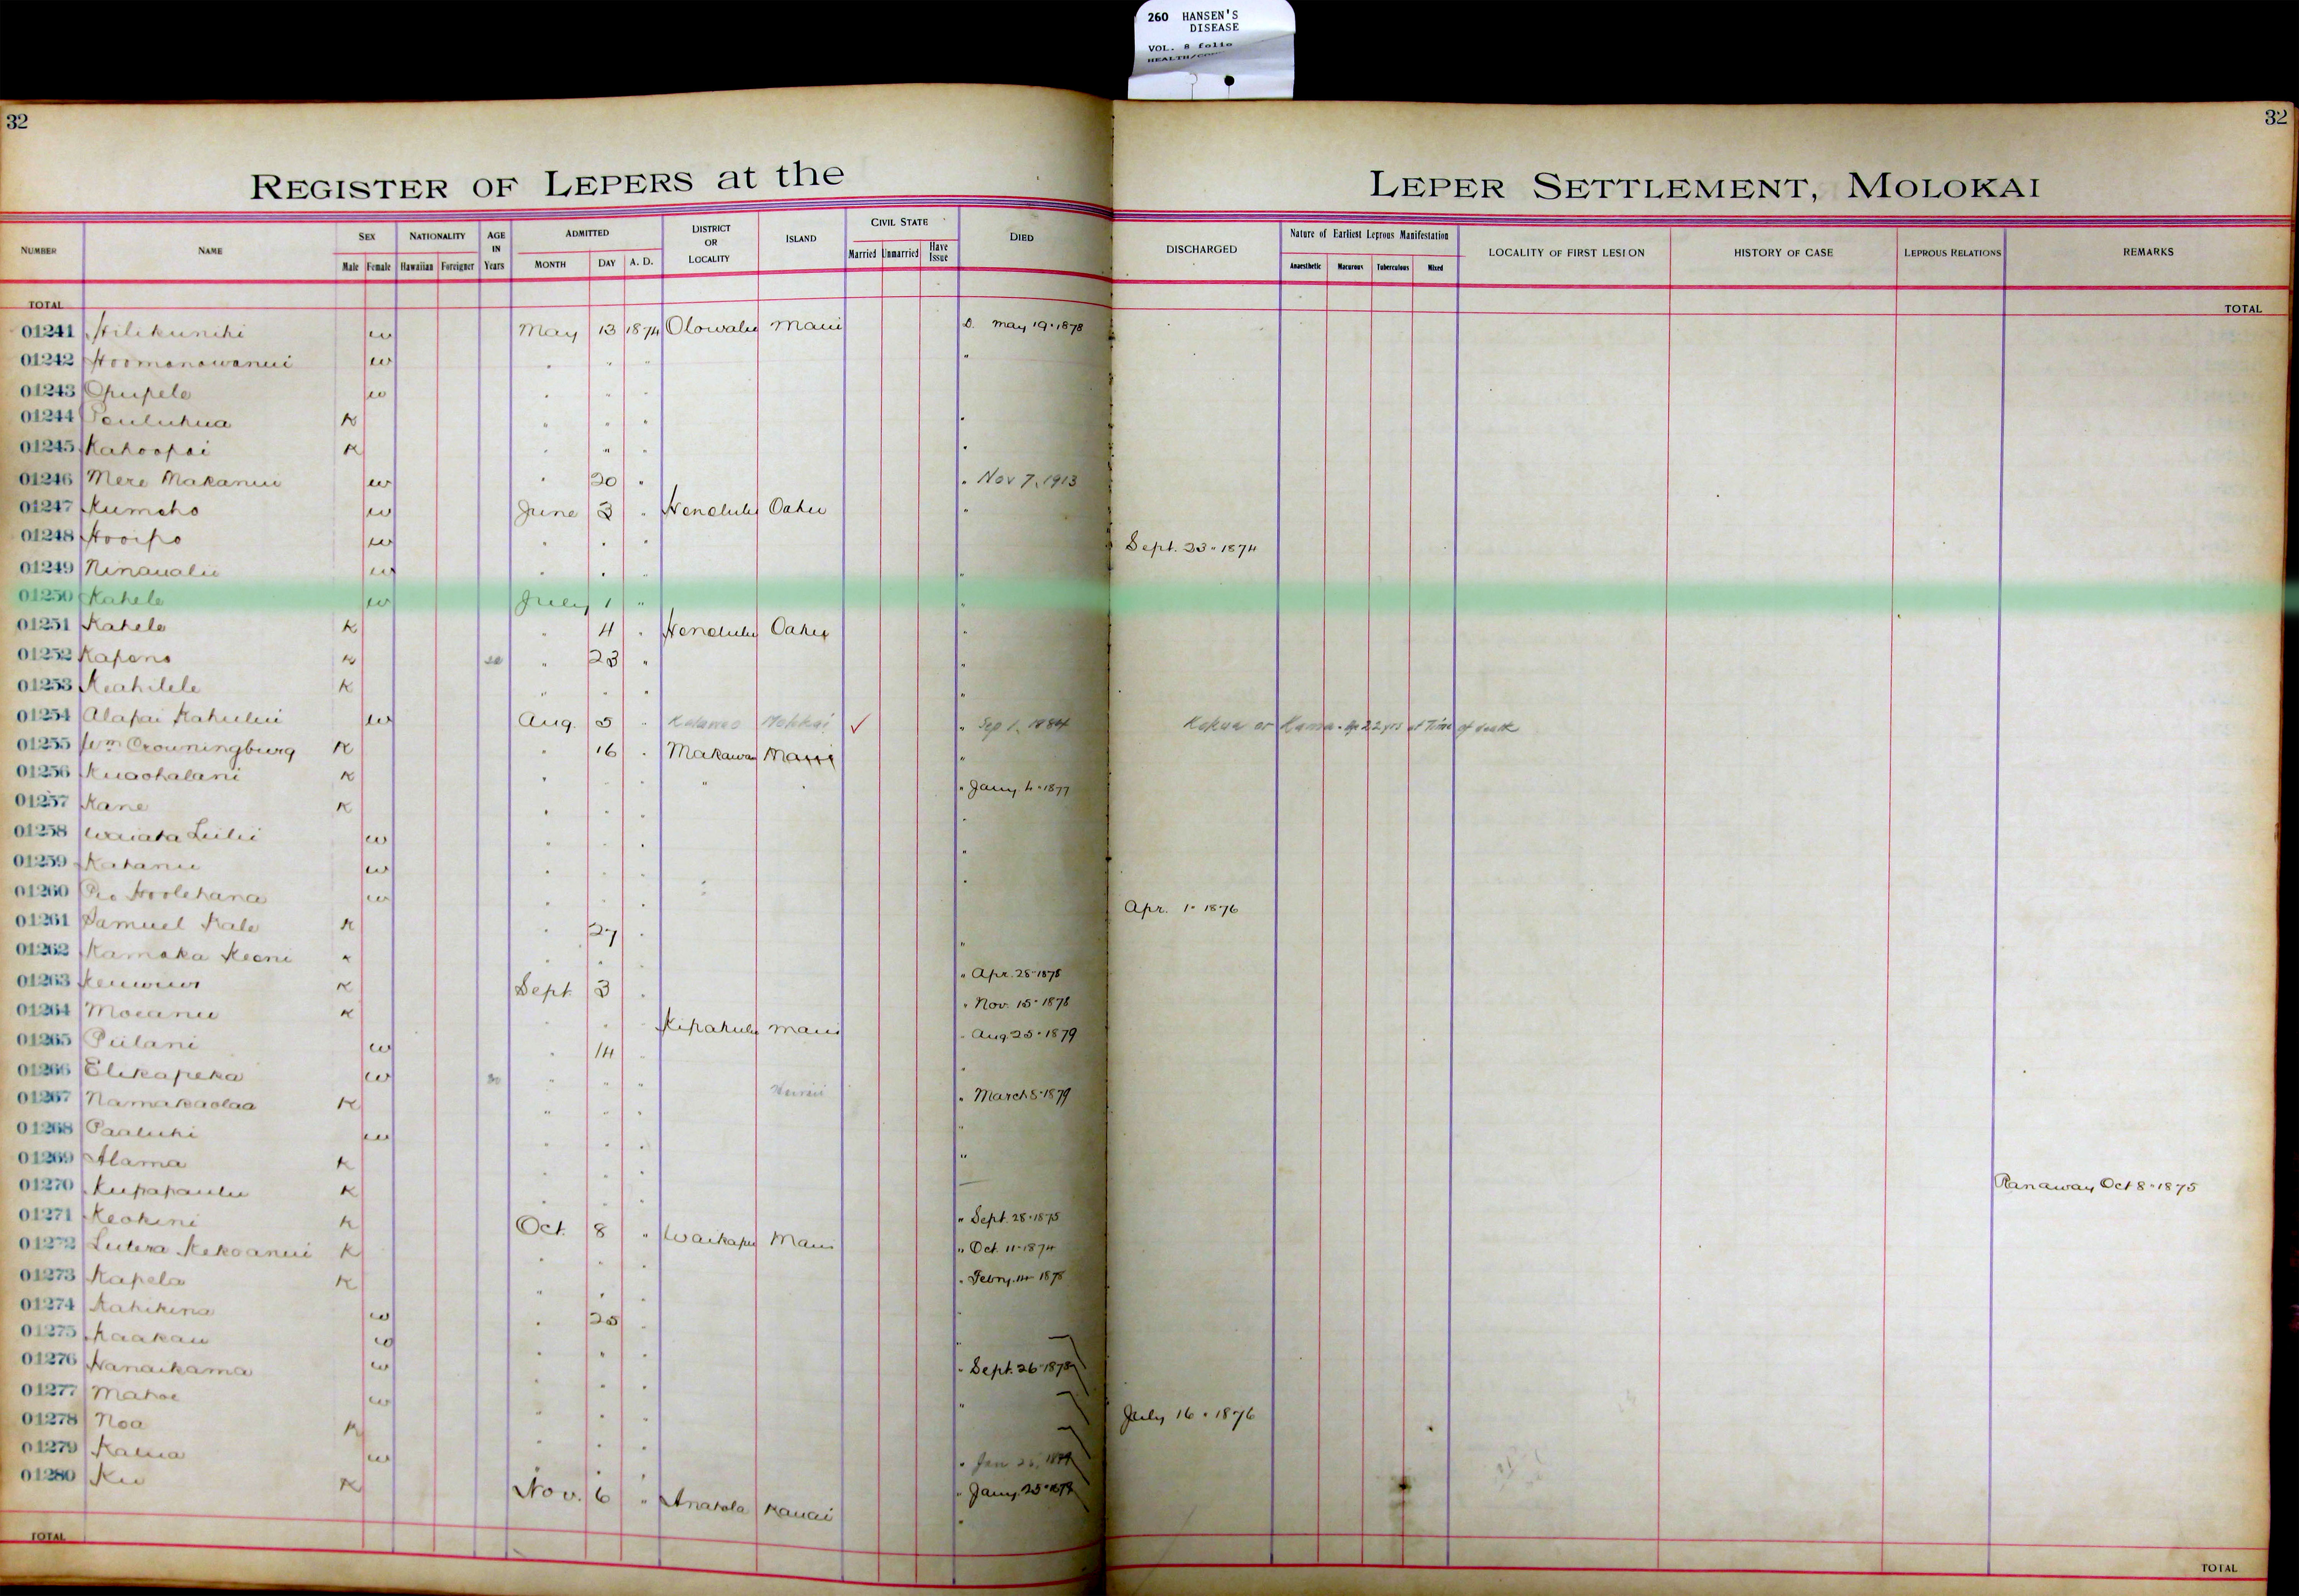 260 HANSEN'S
DISEASE
VOL. 8 folio
32
32
REGISTER OF LEPERS at the LEPER SETTLEMENT, MOLOKAI
NUMBER NAME SEX NATIONALITY AGE IN Years ADMITTED DISTRICT OR LOCALITY ISLAND CIVIL STATE DIED DISCHARGED Nature of Earliest Leprous Manifestation LOCALITY OF FIRST LESION HISTORY OF CASE LEPROUS RELATIONS REMARKS
Male Female Hawaiian Foreigner MONTH DAY A. D. Married Unmarried Have Issue Anaesthetic Macurous Tuberculous Mixed
TOTAL TOTAL
01241 Hilikunihi w May 13 1874 Olowalu Maui D. May 19 - 1878
01242 Hoomanawanui w " " " "
01243 Opupele w " " "
01244 K " " " "
01245 Kahoopai K " " " "
01246 Mere Makanui w " 20 " " Nov 7, 1913
01247 Kumeho w June 3 " Honolulu Oahu "
01248 Hooipo w " " " Sept. 23 - 1874
01249 Ninaualii w " " " "
01250 Kahele w July 1 " "
01251 Kahele K " 4 " Honolulu Oahu "
01252 Kapono K " 23 " "
01253 Keahilele K " " " "
01254 Alapai Kahului w Aug. 5 " Molokai ✓ " Sep 1, 1884 Kokua or Kama - Age 22 yrs at Time of death
01255 Wm Crowningburg K " 16 " Makawao Maui "
01256 Kuaohalani K " " " " " " Jany. 4 - 1877
01257 Kane K " " " "
01258 Waiaka Liilii w " " " "
01259 Kahanu w " " " "
01260 Hoolehana w " " " Apr. 1 - 1876
01261 Samuel Kale K " 27 " "
01262 Kamaka Keoni K " " " " Apr. 28 - 1878
01263 K Sept 3 " " Nov. 15 - 1878
01264 Moeanu K " " " Kipahulu Maui " Aug 25 - 1879
01265 Piilani w " 14 " "
01266 Elikapeka w 30 " " " Hawaii " March 5 - 1879
01267 Namakaolaa K " " " "
01268 Paaluhi w " " " "
01269 Alama K " " " Ranaway Oct 8 - 1875
01270 Kupapaulu K " " " " Sept. 28 - 1875
01271 Keokini K Oct. 8 " Waikapu Maui " Oct. 11 - 1874
01272 Lutera Kekoanui K " " " " Febry. 14 - 1878
01273 Kapela K " " " "
01274 Kahikina w " 25 " "
01275 Kaakau w " " " " Sept. 26 - 1878
01276 Hanaikama w " " " "
01277 Mahoe w " " " July 16 - 1876
01278 Noa K " " "
01279 Kalua w " " "
01280 Ku K Nov. 6 " Anahola Kauai "
TOTAL TOTAL